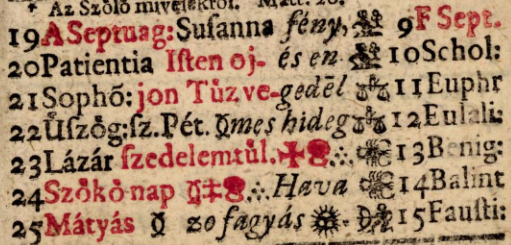 Az Szőlő mivelésről. Matt. 20.
19 A Septuag: Susanna fény, 9 F Sept.
20 Patientia Isten oj- és en 10 Schol:
21 Sophõ: jon Tűz ve- gedēl 11 Euphr
22 Üszög: sz. Pét. mes hideg 12 Eulali:
23 Lázár szedelemtűl. 13 Benig:
24 Szőkő nap Hava 14 Bálint
25 Mátyás zo fagyás 15 Fausti: